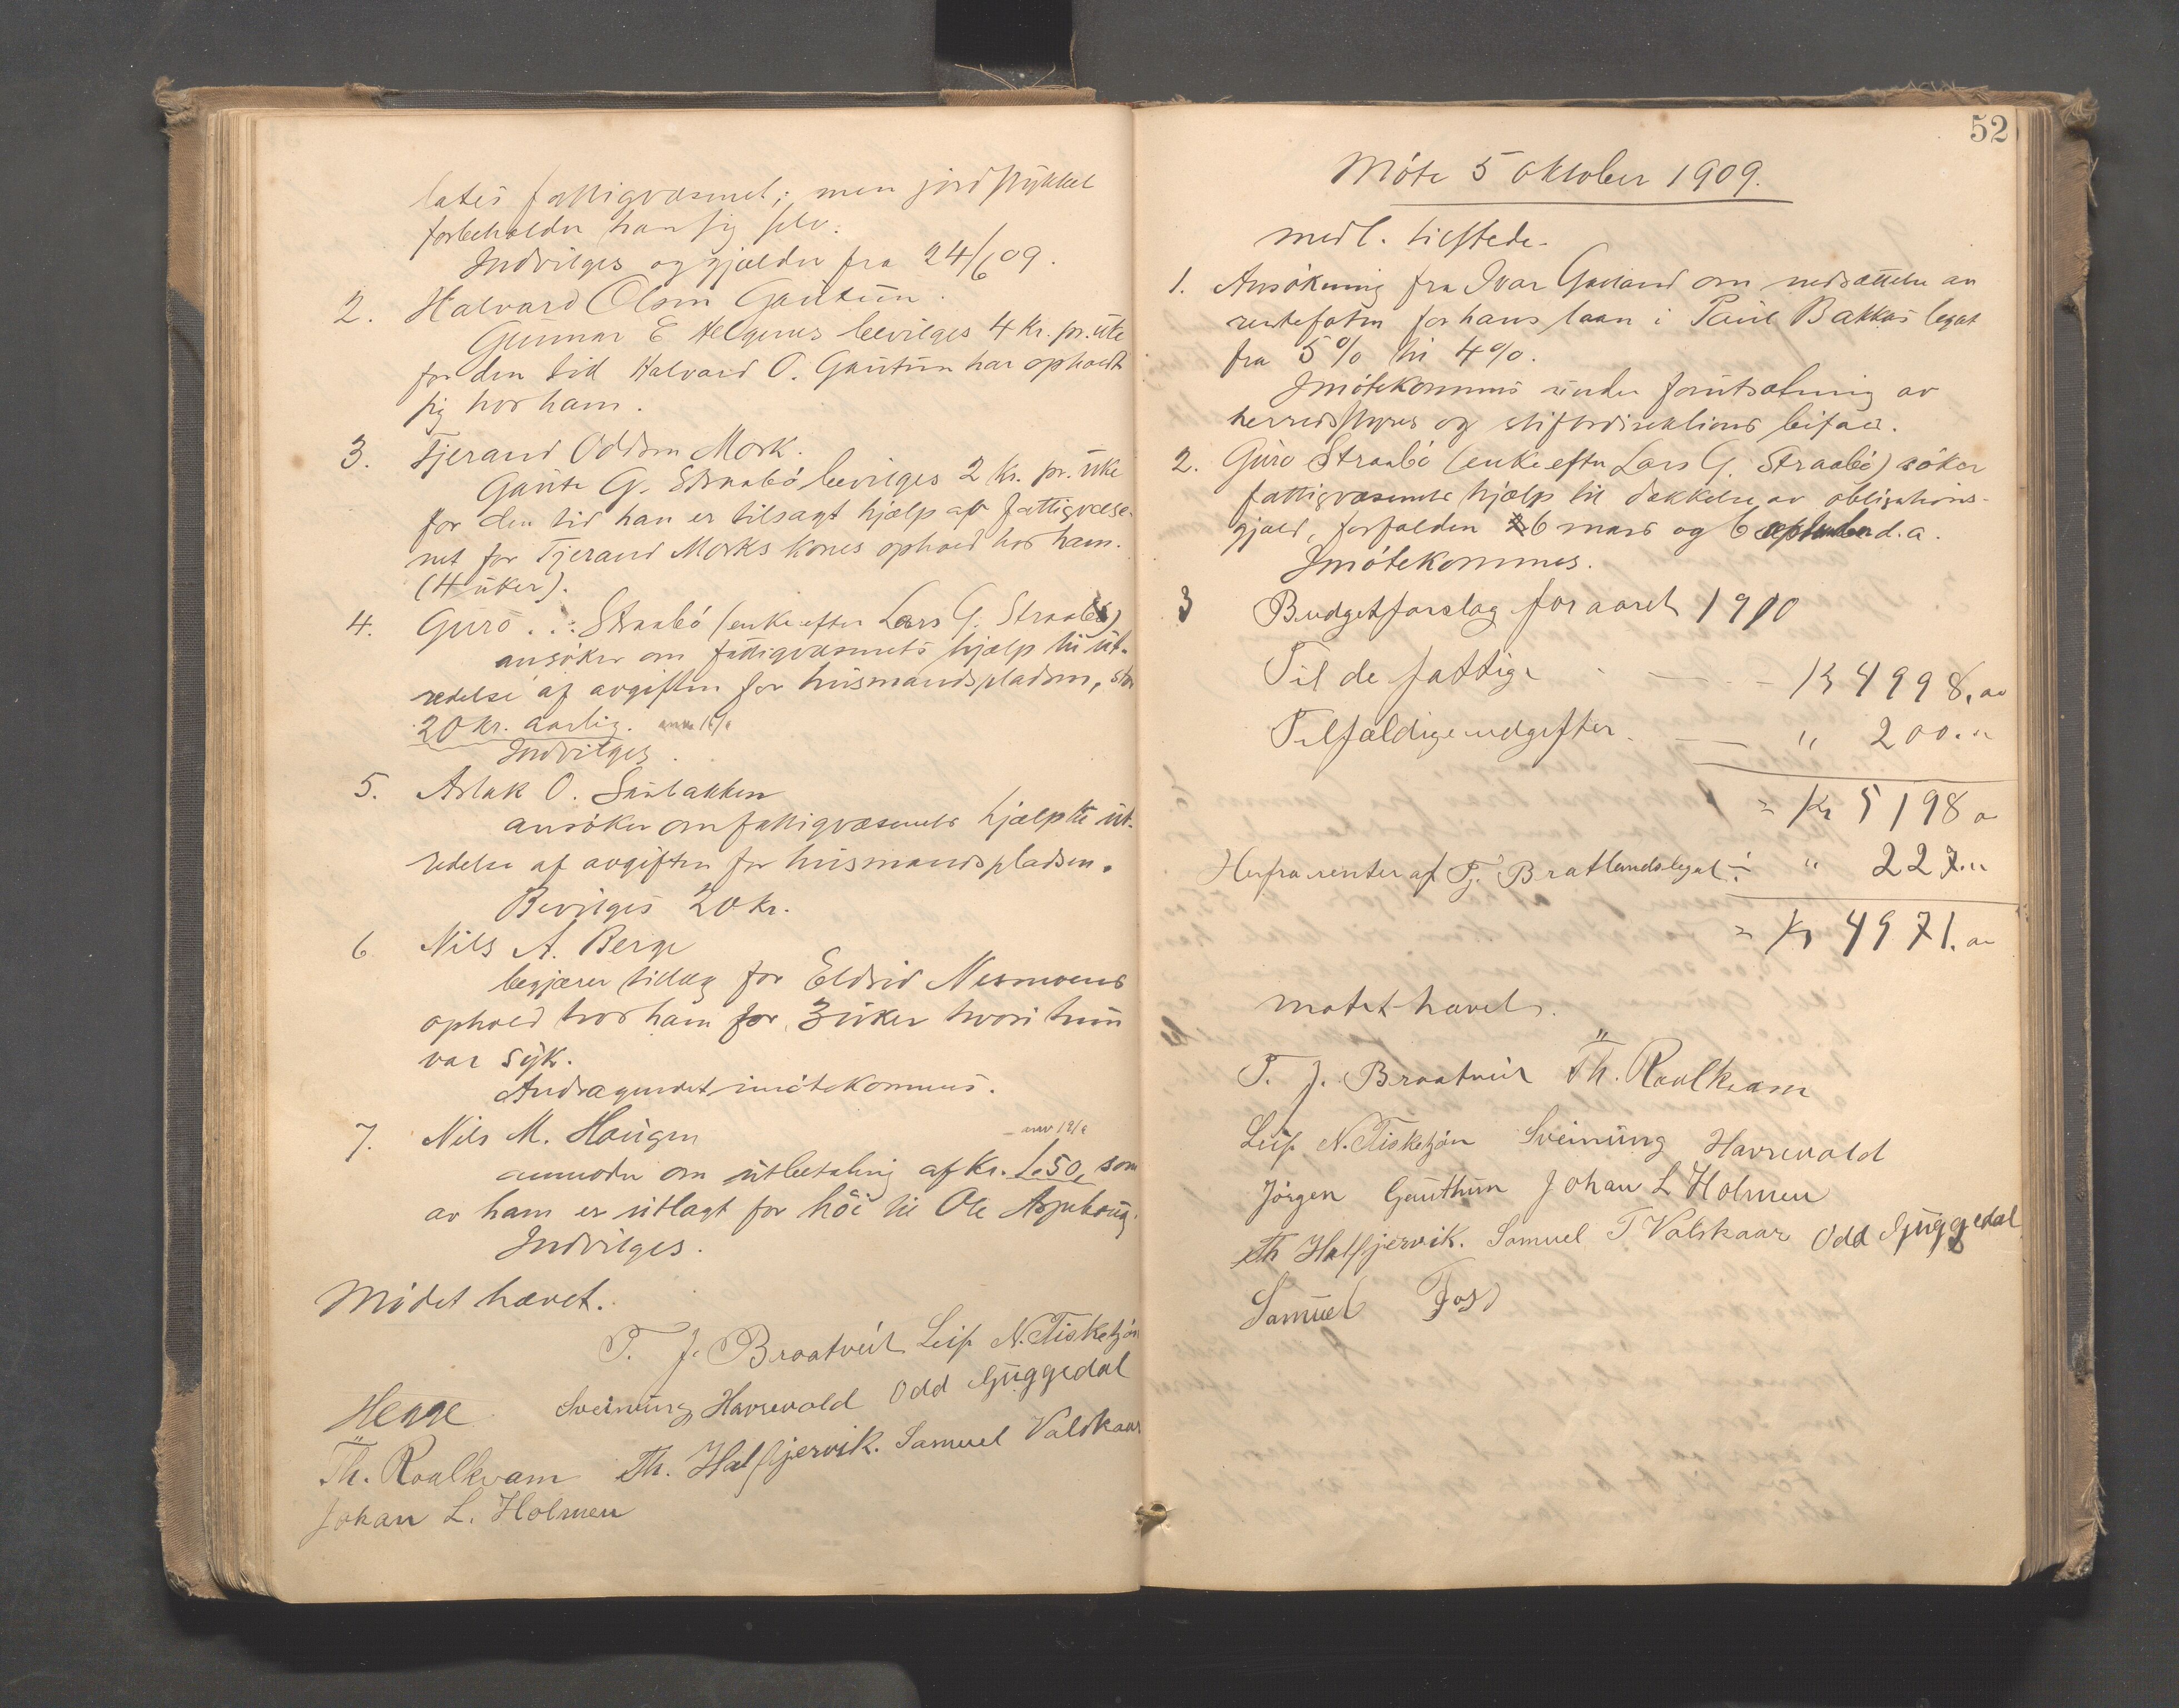 lates fattigvæsenet; men jordstykket
forbeholder han sig selv.
Indvilges og gjælder fra 24/6 09.
2. Halvard Olsen Gautun.
Gunnar E Helgenes bevilges 4 Kr. pr. uke
for den tid Halvard O. Gautun har opholdt
sig hos ham.
3. Tjerand Oddsen Mork.
Gaute G. Straabö bevilges 2 kr. pr. uke
for den tid han er tilsagt hjælp af fattigvæse-
net for Tjerand Morks kones ophold hos ham.
(4 uker).
4. Guro . . . Straabö (enke efter Lars G. Straabö)
ansöker om fattigvæsenets hjælp til ut-
redelse af avgiften for husmandspladsen, stor
20 kr. aarlig.
Indvilges.
5. Aslak O. Saubakken
ansöker om fattigvæsenets hjælp til ut-
redelse af avgiften for husmandspladsen.
Bevilges 20 kr.
6 Nils A. Berge
begjærer tillæg for Eldrid Nesmoens
ophold hos ham for 3 uker hvori hun
var syk.
Andragendet imötekommes.
7. Nils M. Haugen
anmoder om utbetaling af Kr. 1.50, som
av ham er utlagt for höi til Ole Aspehaug.
Indvilges.
Mödet hævet.
T. J. Braatveit Leif N. Fisketjön
Helge Sveinung Havrevold Odd Guggedal
Th. Roalkvam Th. Halfjervik. Samuel Valskaar
Johan L. Holmen
52
Möte 5 oktober 1909.
medl. tilstede.
1. Ansökning fra Ivar Gauland om nedsættelse av
rentefoten for hans laan i Paul Bakkas legat
fra 5% til 4%.
Imötekommes under forutsætning av
herredsstyres og stiftsdirektions bifald.
2. Guro Straabö (enke efter Lars G. Straabö) söker
fattigvæsenets hjælp til dækkelse av obligations-
gjæld, forfalden 6 mars og 6 september d.a.
Imötekommes.
3 Budgetforslag for aaret 1910
Til de fattige - — - - Kr 4998,00
Tilfældige udgifter. — — " 200.00
= Kr 5198 00
Herfra renter af Tj. Bratlandslegat ÷ " 227.00
= Kr 4971.00
mötet hævet.
T. J. Braatveit Th. Roalkvam
Leif N. Fisketjön Sveinung Havrevold
Jörgen Gauthun Johan L Holmen
Th Halfjervik. Samuel T Valskaar Odd Guggedal
Samuel Foss